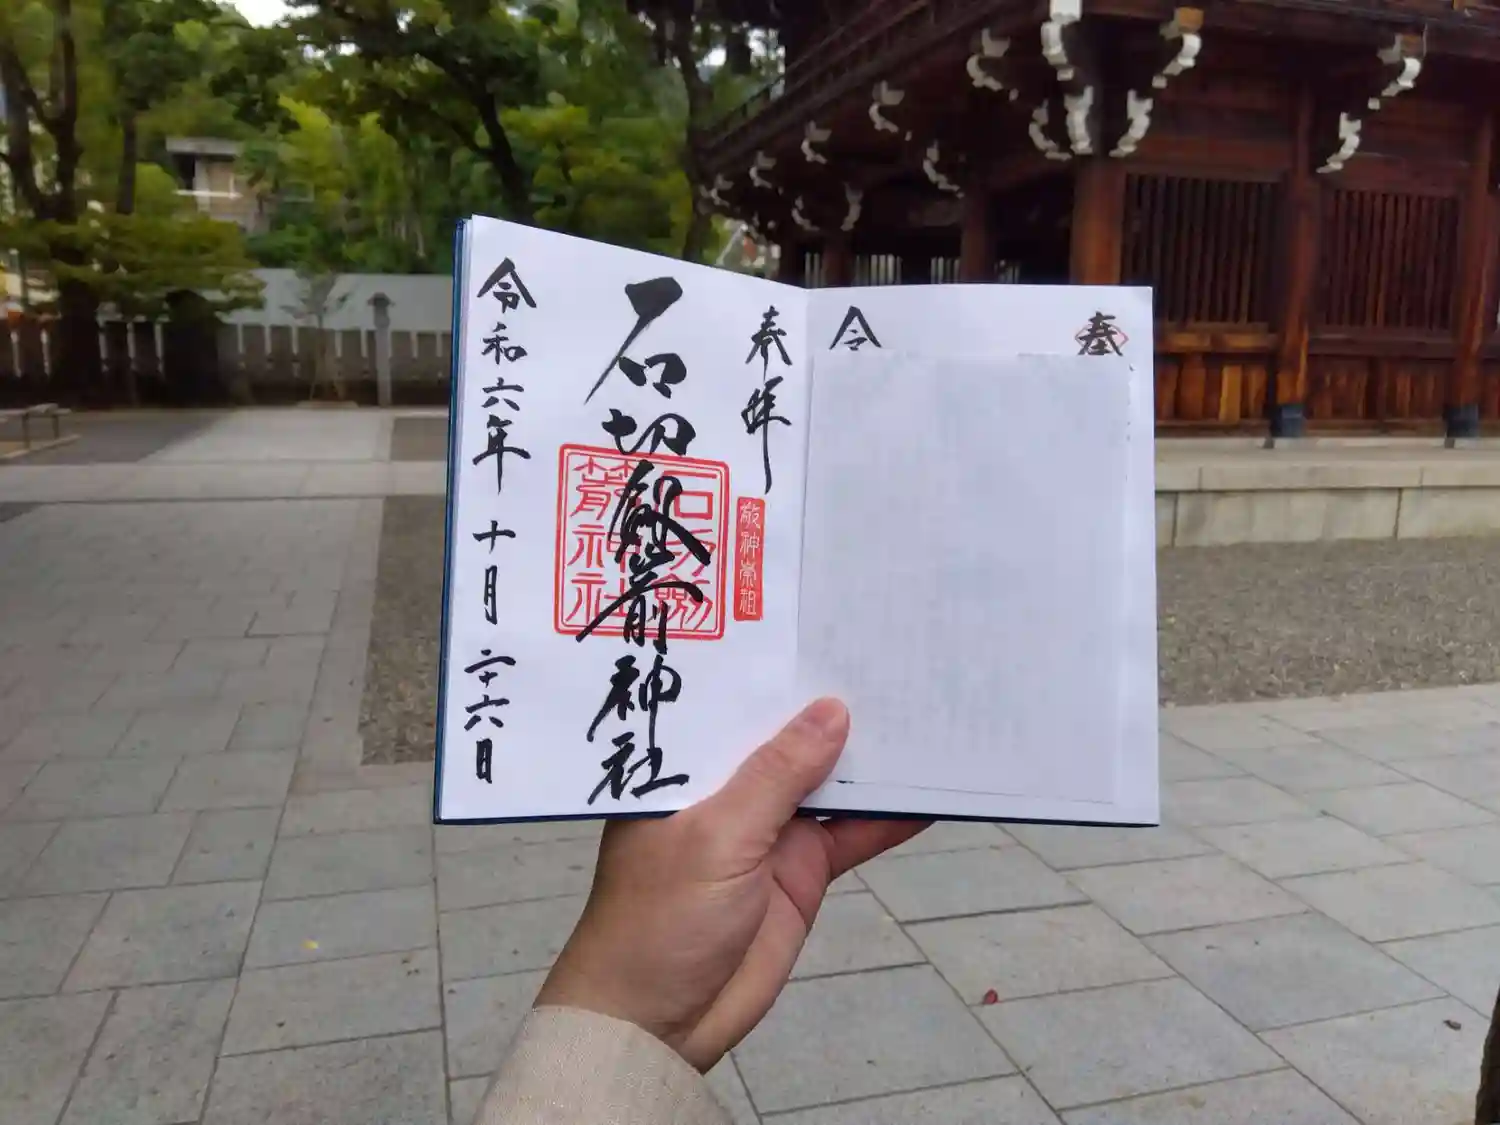 奉
令
奉拝
敬神崇祖
石切劔箭神社
石切劔
箭神社
令和六年十月二十六日